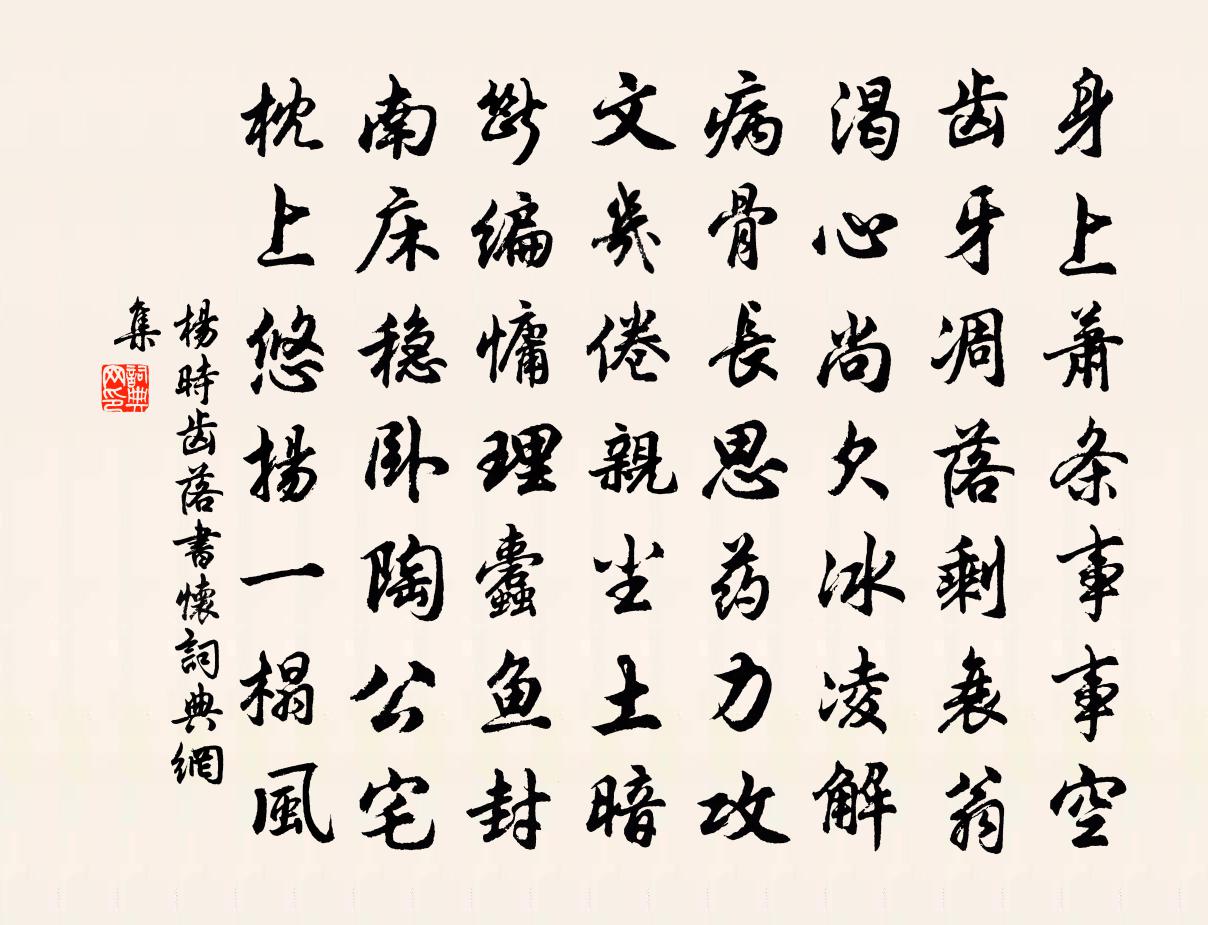 身上萧条事事空
齿牙凋落剩衰翁
渴心尚欠冰凌解
病骨長思药力攻
文几倦親尘土暗
断编慵理蠹鱼封
南床稳卧陶公宅
枕上悠揚一榻風
楊時齿落書懷詞典網
集
詞典
网印